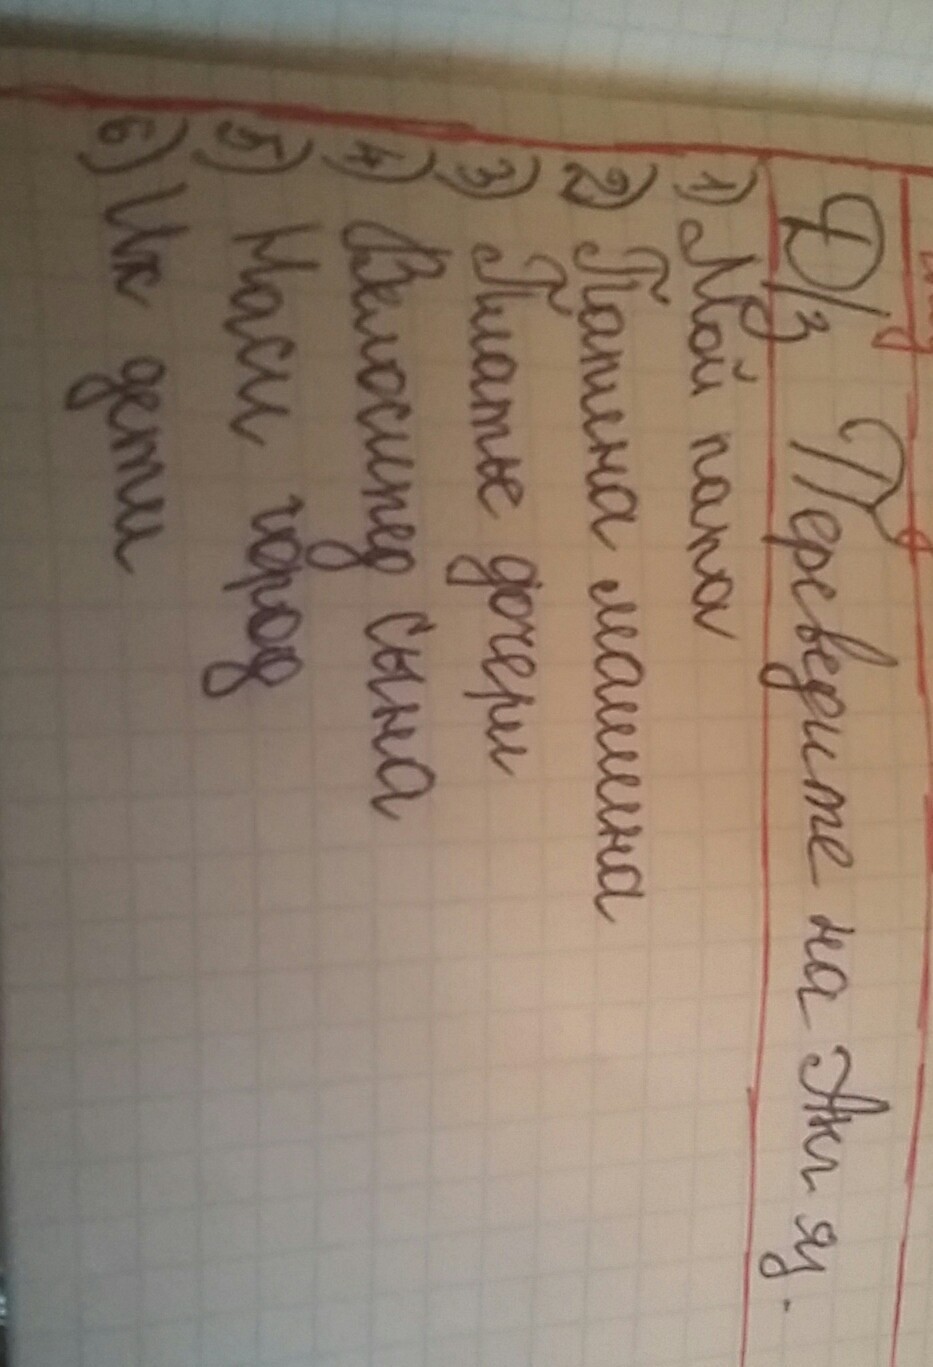 Д/з Переведите на Анг яз.
1) Мой папа
2) Папина машина
3) Платье дочери
4) Велосипед сына
5) Наш город
6) Их дети